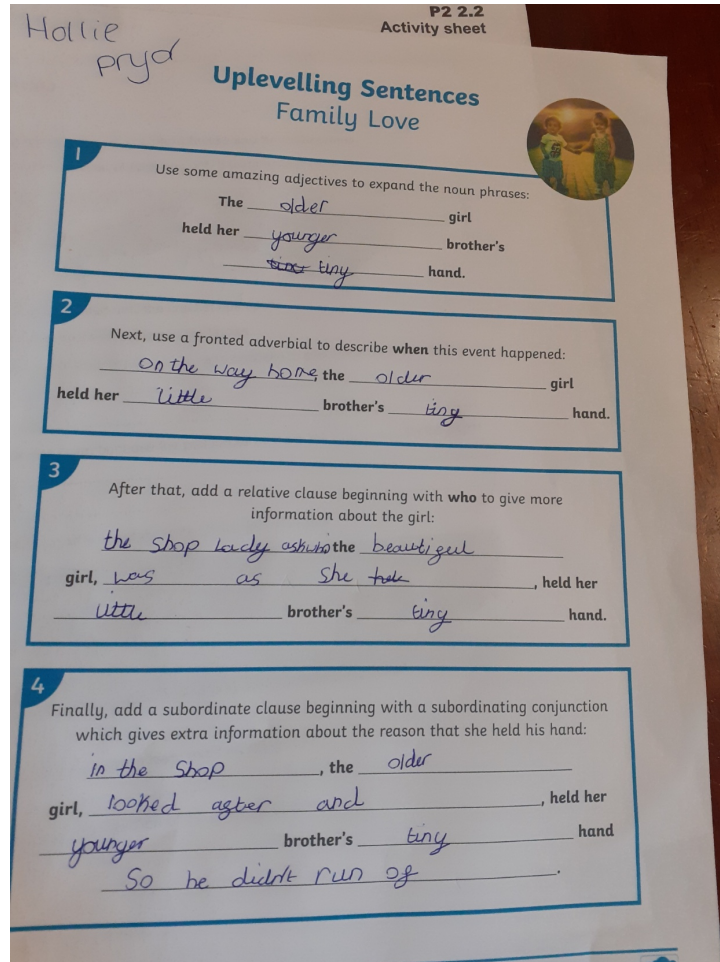 P2 2.2
Activity sheet
Hollie
pryd
Uplevelling Sentences
Family Love
1
Use some amazing adjectives to expand the noun phrases:
The older girl
held her younger brother's
tiny hand.
2
Next, use a fronted adverbial to describe when this event happened:
On the way home, the older girl
held her little brother's tiny hand.
3
After that, add a relative clause beginning with who to give more
information about the girl:
the shop lady ask who the beautiful
girl, was as she , held her
little brother's tiny hand.
4
Finally, add a subordinate clause beginning with a subordinating conjunction
which gives extra information about the reason that she held his hand:
in the shop , the older
girl, looked after and , held her
younger brother's tiny hand
So he didn't run of .